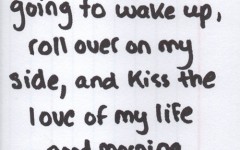 going to wake up,
roll over on my
side, and kiss the
love of my life
good morning